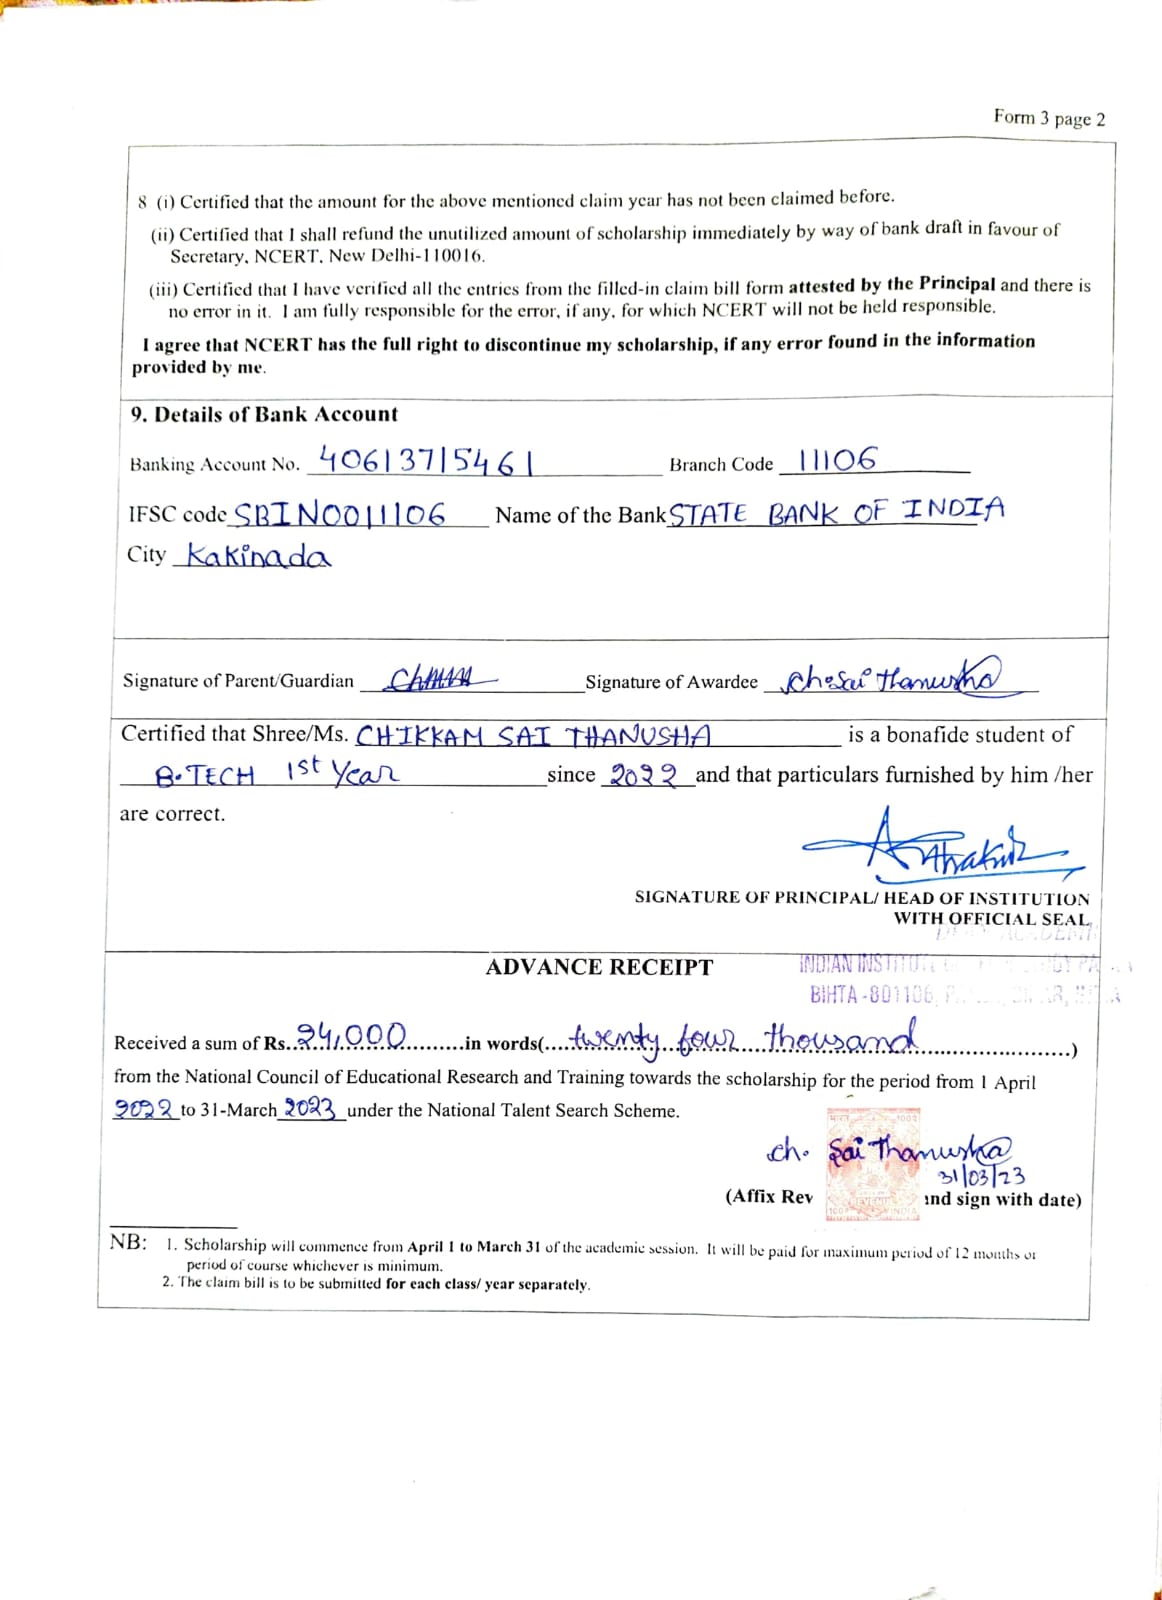 Form 3 page 2
8 (i) Certified that the amount for the above mentioned claim year has not been claimed before.
(ii) Certified that I shall refund the unutilized amount of scholarship immediately by way of bank draft in favour of
Secretary, NCERT, New Delhi-110016.
(iii) Certified that I have verified all the entries from the filled-in claim bill form attested by the Principal and there is
no error in it. I am fully responsible for the error, if any, for which NCERT will not be held responsible.
I agree that NCERT has the full right to discontinue my scholarship, if any error found in the information
provided by me.
9. Details of Bank Account
Banking Account No. 40613715461 Branch Code 11106
IFSC code SBIN0011106 Name of the Bank STATE BANK OF INDIA
City Kakinada
Signature of Parent/Guardian Signature of Awardee Ch. Sai Thanusha
Certified that Shree/Ms. CHIKKAM SAI THANUSHA is a bonafide student of
B.TECH 1st Year since 2022 and that particulars furnished by him /her
are correct.
SIGNATURE OF PRINCIPAL/ HEAD OF INSTITUTION
WITH OFFICIAL SEAL
ADVANCE RECEIPT
INDIAN
BIHTA-801106,
Received a sum of Rs..24,000.........in words(....twenty four thousand.........................)
from the National Council of Educational Research and Training towards the scholarship for the period from 1 April
2022 to 31-March 2023 under the National Talent Search Scheme.
ch. Sai Thanusha
31/03/23
(Affix Rev and sign with date)
NB: 1. Scholarship will commence from April 1 to March 31 of the academic session. It will be paid for maximum period of 12 months or
period of course whichever is minimum.
2. The claim bill is to be submitted for each class/ year separately.